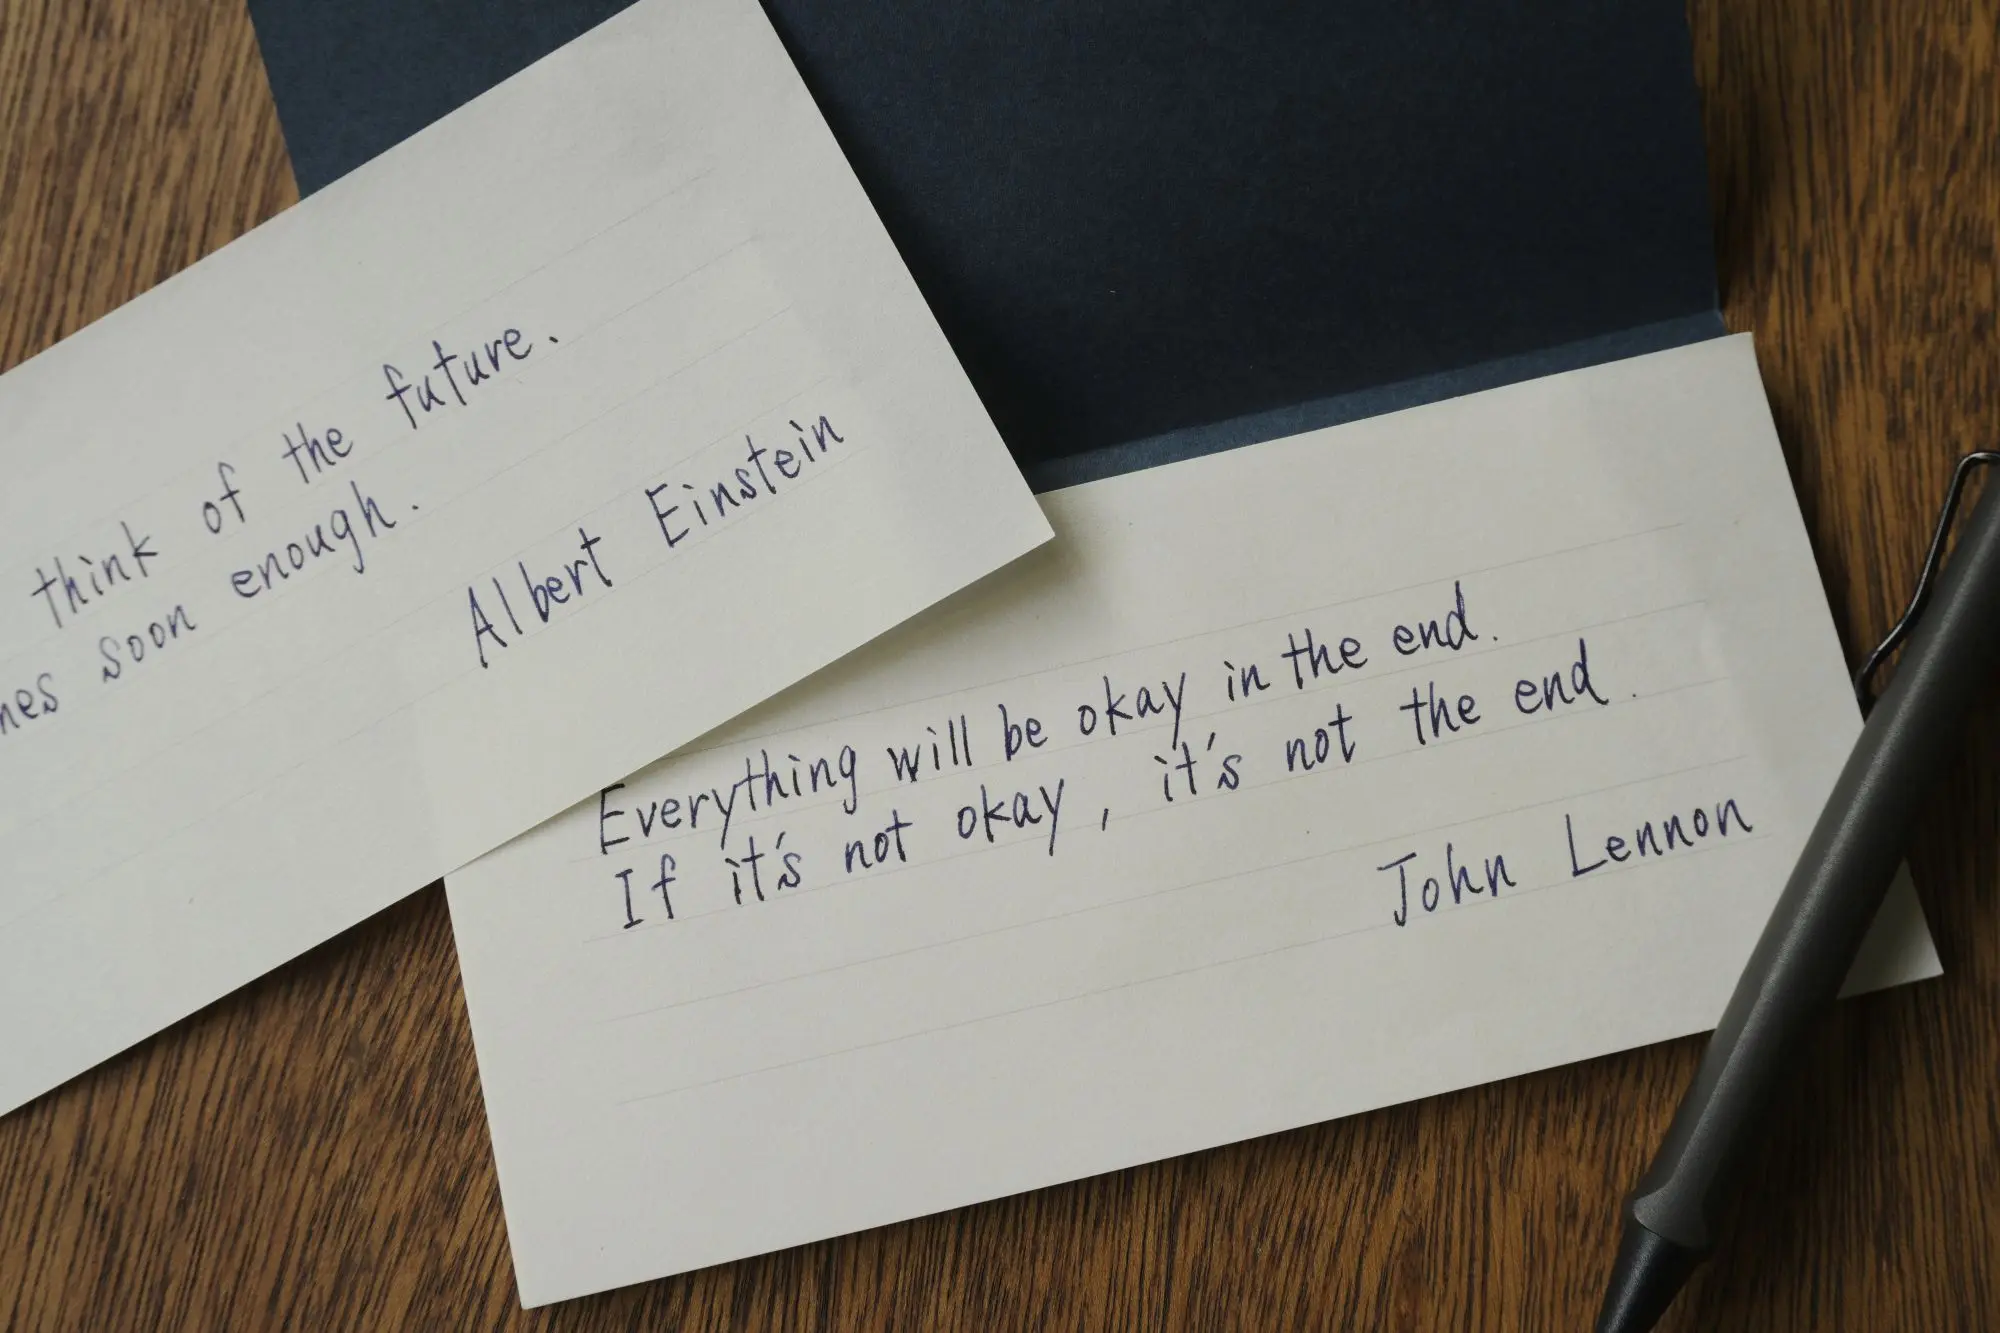 think of the future.
soon enough.
Albert Einstein
Everything will be okay in the end.
If it's not okay, it's not the end.
John Lennon